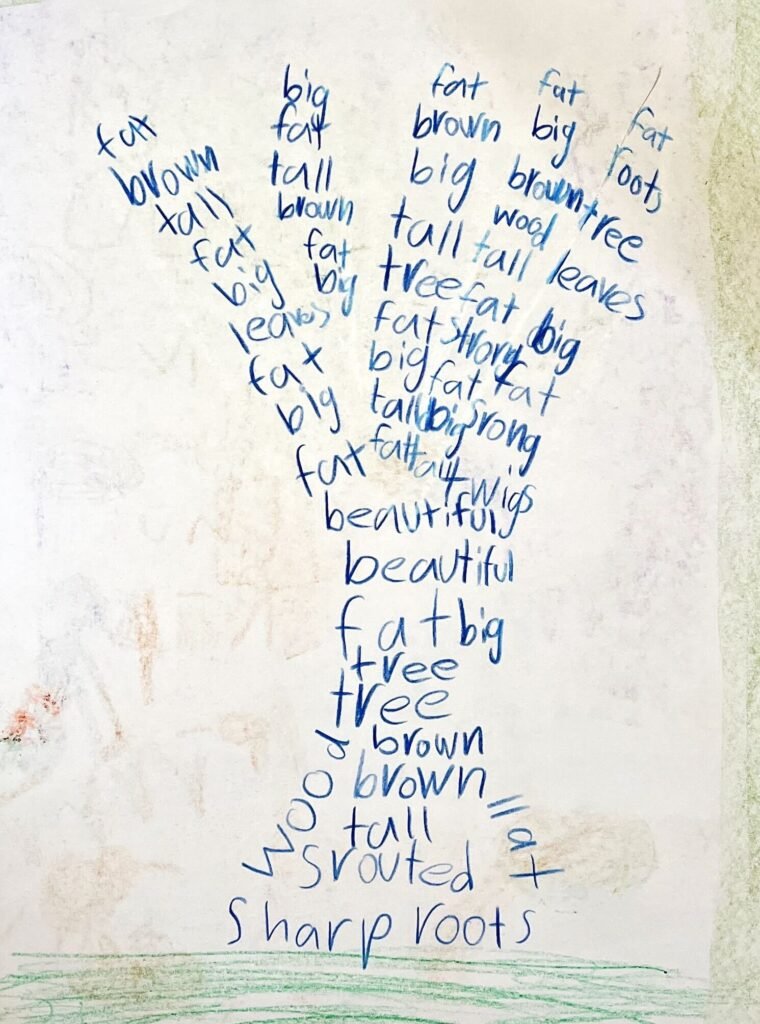 fat
brown
tall
fat
big
leaves
fat
big
fat
big
fat
tall
brown
fat
big
fat
brown
big
tall
tree
fat
big
tall
fat
fat
big
brown
wood
tall
fat
strong
fat
big
fat
fat
roots
tree
leaves
big
fat
srong
twigs
beautiful
beautiful
fat big
tree
tree
brown
wood
brown
tall
tall
srouted
sharp roots